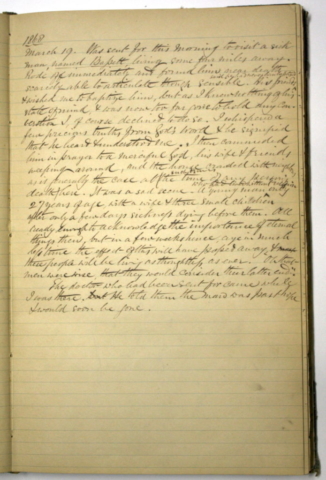 1868
March 19. Was sent for this morning to visit a sick
man, named Bassett, living some few miles away.
Rode off immediately and found him near dying
unable to articulate though sensible. His friends
wished me to baptize him, but as I knew nothing of his
state of mind & was now too far gone to hold any con-
versation I, of course declined to do so. I whispered a
few precious truths from God's word & he signified
that he heard & understood me. I then commended
him in prayer to a merciful God, his wife & friends
weeping around, and the house crowded with
as is usually the case at the time
death here. It was a sad scene. A young man only
27 years of age with a wife & three small children
after only a few days sickness dying before them. All
ready enough to acknowledge the importance of eternal
things then, but in a few weeks hence, aye in much
less time the effect of this will have passed away &
these people will be living as thoughtless as ever. Oh that
men were wise that they would consider their latter end!
The doctor who had been sent for came while
I was there. But He told them the man was past hope
& would soon be gone.